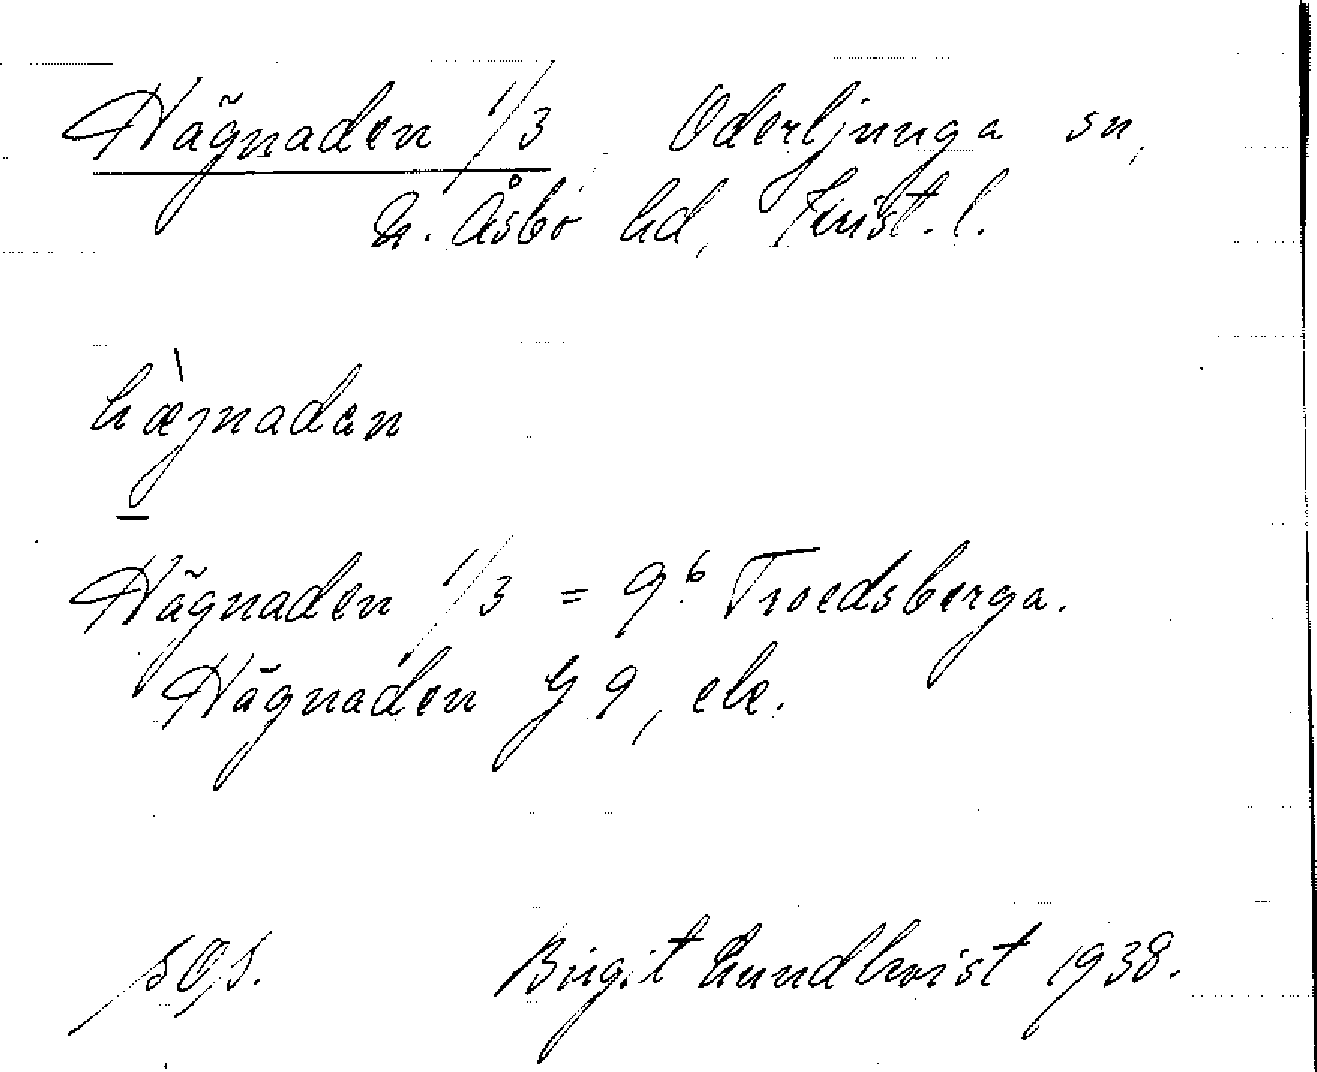 Hägnaden 1/3 Oderljunga sn,
N. Åsbo hd, Krist. l.
hæ̀jnadan
Hägnaden 1/3 = 9:6 Troedsberga.
Hägnaden G 9, ek.
Birgit Lundkvist 1938.